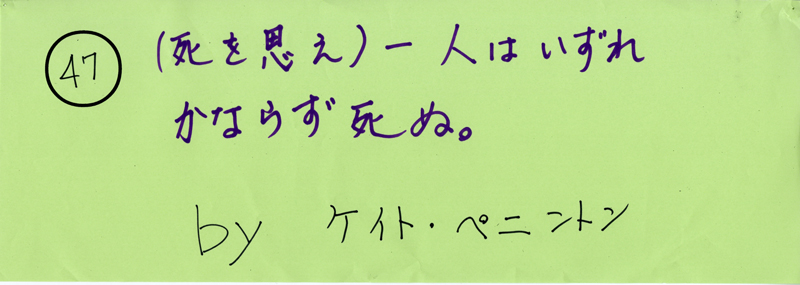 47
(死を思え)ー人はいずれ
かならず死ぬ。
by ケイト・ペニントン